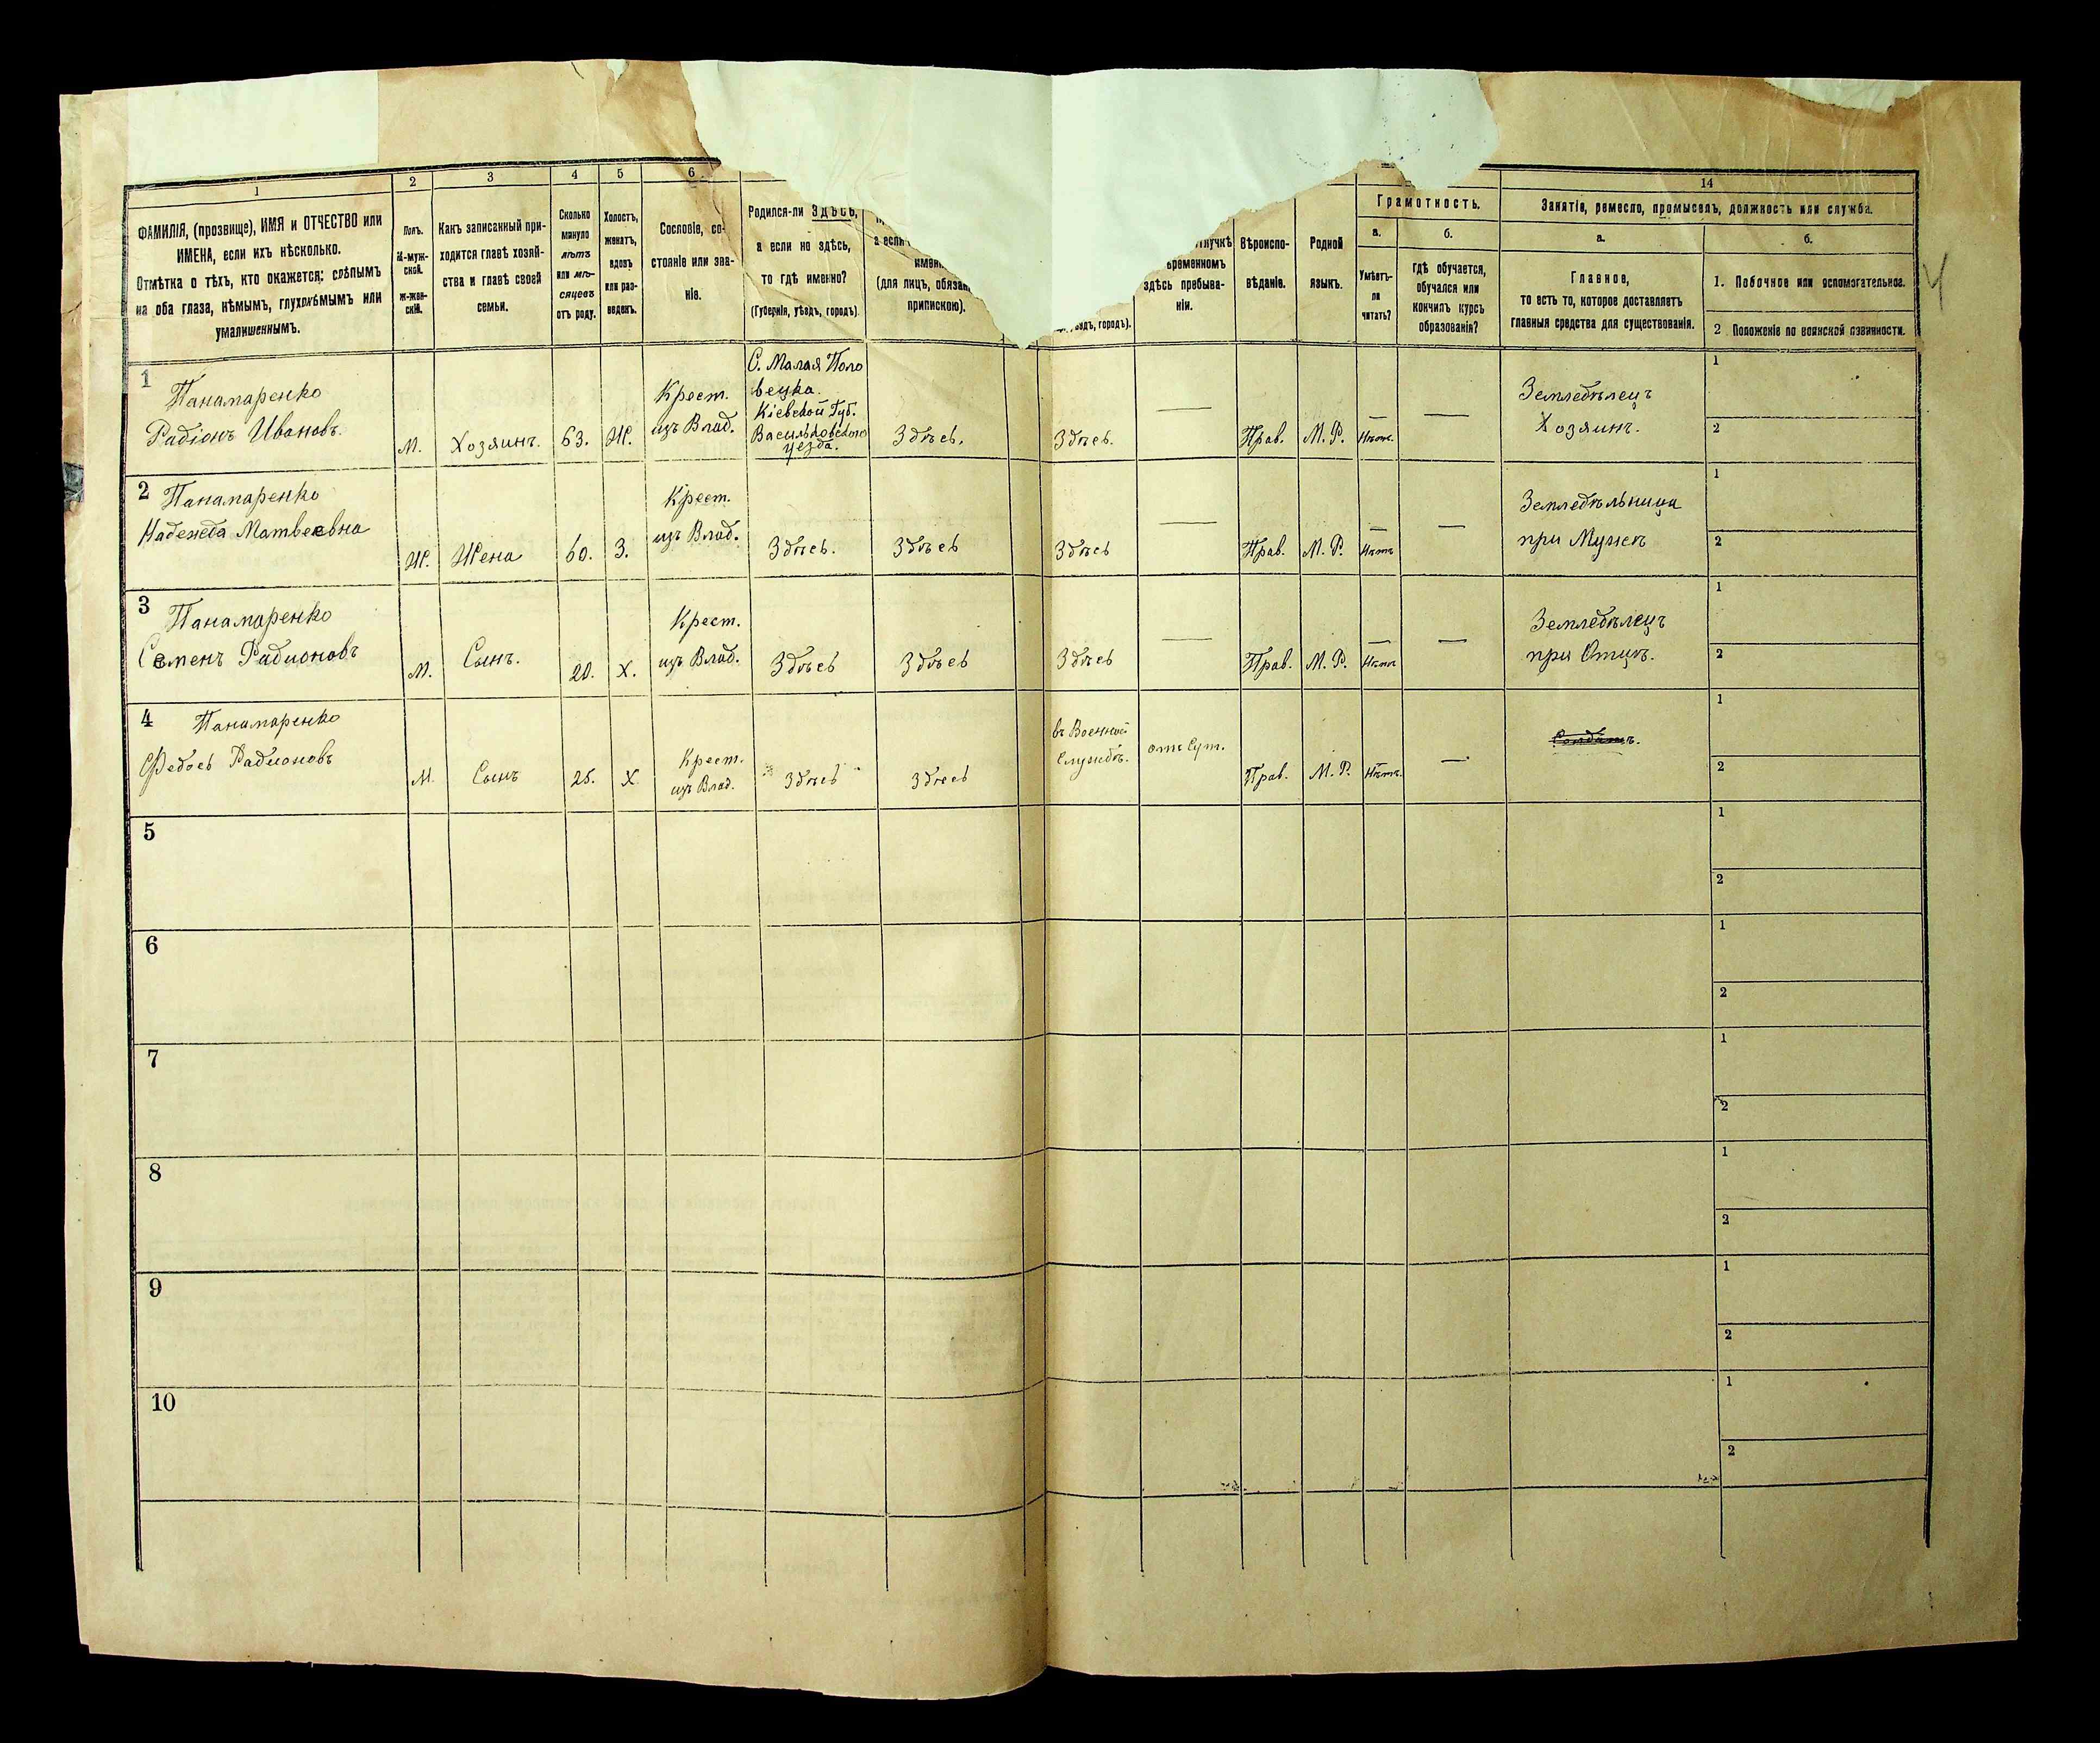 1
2
3
4
5
6
14
ФАМИЛІЯ, (прозвище), ИМЯ и ОТЧЕСТВО или
ИМЕНА, если ихъ нѣсколько.
Отмѣтка о тѣхъ, кто окажется: слѣпымъ
на оба глаза, нѣмымъ, глухонѣмымъ или
умалишеннымъ.
Полъ.
М-муж-
ской.
Ж-жен-
скій.
Какъ записанный при-
ходится главѣ хозяй-
ства и главѣ своей
семьи.
Сколько
минуло
лѣтъ
или мѣ-
сяцевъ
отъ роду.
Холостъ,
женатъ,
вдовъ
или раз-
веденъ.
Сословіе, со-
стояніе или зва-
ніе.
Родился-ли ЗДѢСЬ,
а если не здѣсь,
то гдѣ именно?
(Губернія, уѣздъ, городъ)
а если
(для лицъ, обязан
припискою).
ѣздъ, городъ).
лучкѣ
временномъ
здѣсь пребыва-
ніи.
Вѣроиспо-
вѣданіе.
Родной
языкъ.
Грамотность.
а.
б.
Умѣетъ-
ли
читать?
Гдѣ обучается,
обучался или
кончилъ курсъ
образованія?
Занятіе, ремесло, промыселъ, должность или служба.
а.
б.
Главное,
то есть то, которое доставляетъ
главныя средства для существованія.
1. Побочное или вспомогательное.
2 Положеніе по воинской повинности.
1
Панамаренко
Радіонъ Ивановъ.
М.
Хозяинъ.
63.
Ж.
Крест.
изъ Влад.
С. Малая Поло
вецка.
Кіевской Губ.
Васильковского
уезда.
Здѣсь.
Здѣсь.
—
Прав.
М. Р.
Нѣтъ
—
Земледѣлецъ
Хозяинъ.
1
2
2
Панамаренко
Надежда Матвеевна
Ж.
Жена
60.
З.
Крест.
изъ Влад.
Здѣсь.
Здѣсь
Здѣсь
—
Прав.
М. Р.
Нѣтъ
—
Земледѣльница
при Мужѣ
1
2
3
Панамаренко
Семенъ Радионовъ
М.
Сынъ.
20.
Х.
Крест.
изъ Влад.
Здѣсь
Здѣсь
Здѣсь
—
Прав.
М. Р.
Нѣтъ
—
Земледѣлецъ
при Отцѣ.
1
2
4
Панамаренко
Федось Радионовъ
М.
Сынъ
25.
Х
Крест.
изъ Влад.
Здѣсь
Здѣсь
въ Военной
Службѣ.
отъ сут.
Прав.
М. Р.
Нѣтъ.
—
Солдатъ.
1
2
5
1
2
6
1
2
7
1
2
8
1
2
9
1
2
10
1
2